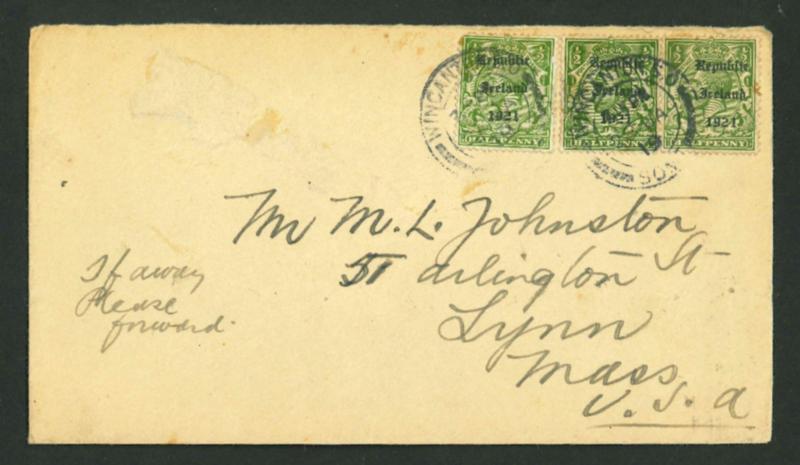 Republic
Ireland
1921
HALFPENNY
½
Republic
Ireland
1921
HALFPENNY
½
Republic
Ireland
1921
HALFPENNY
WINCANTON
WINCANTON
SOM
19
Mr M. L. Johnston
51 arlington St
Lynn
Mass
U. S. a
If away
Please
forward.